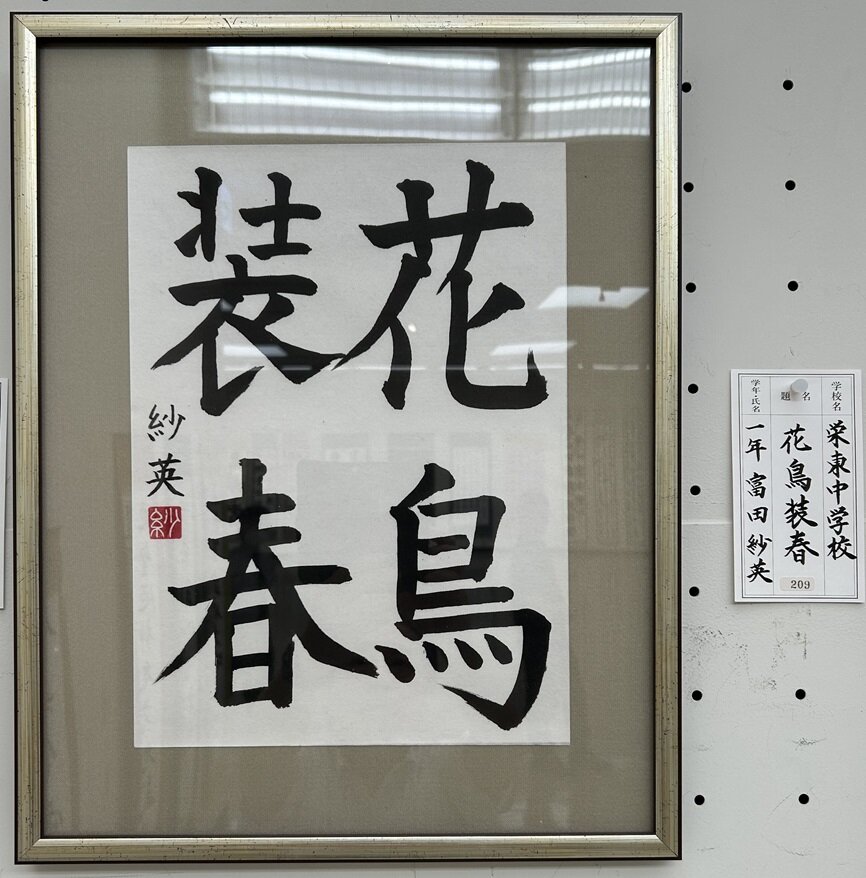 花鳥
装春
紗英
紗
学校名
栄東中学校
題名
花鳥装春
209
学年・氏名
一年 富田紗英